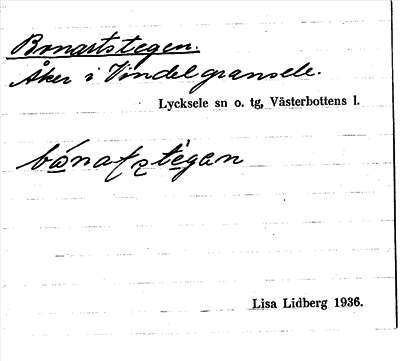 Bonartstegen.
Åker i Vindelgransele.
Lycksele sn o. tg, Västerbottens l.
Lisa Lidberg 1936.